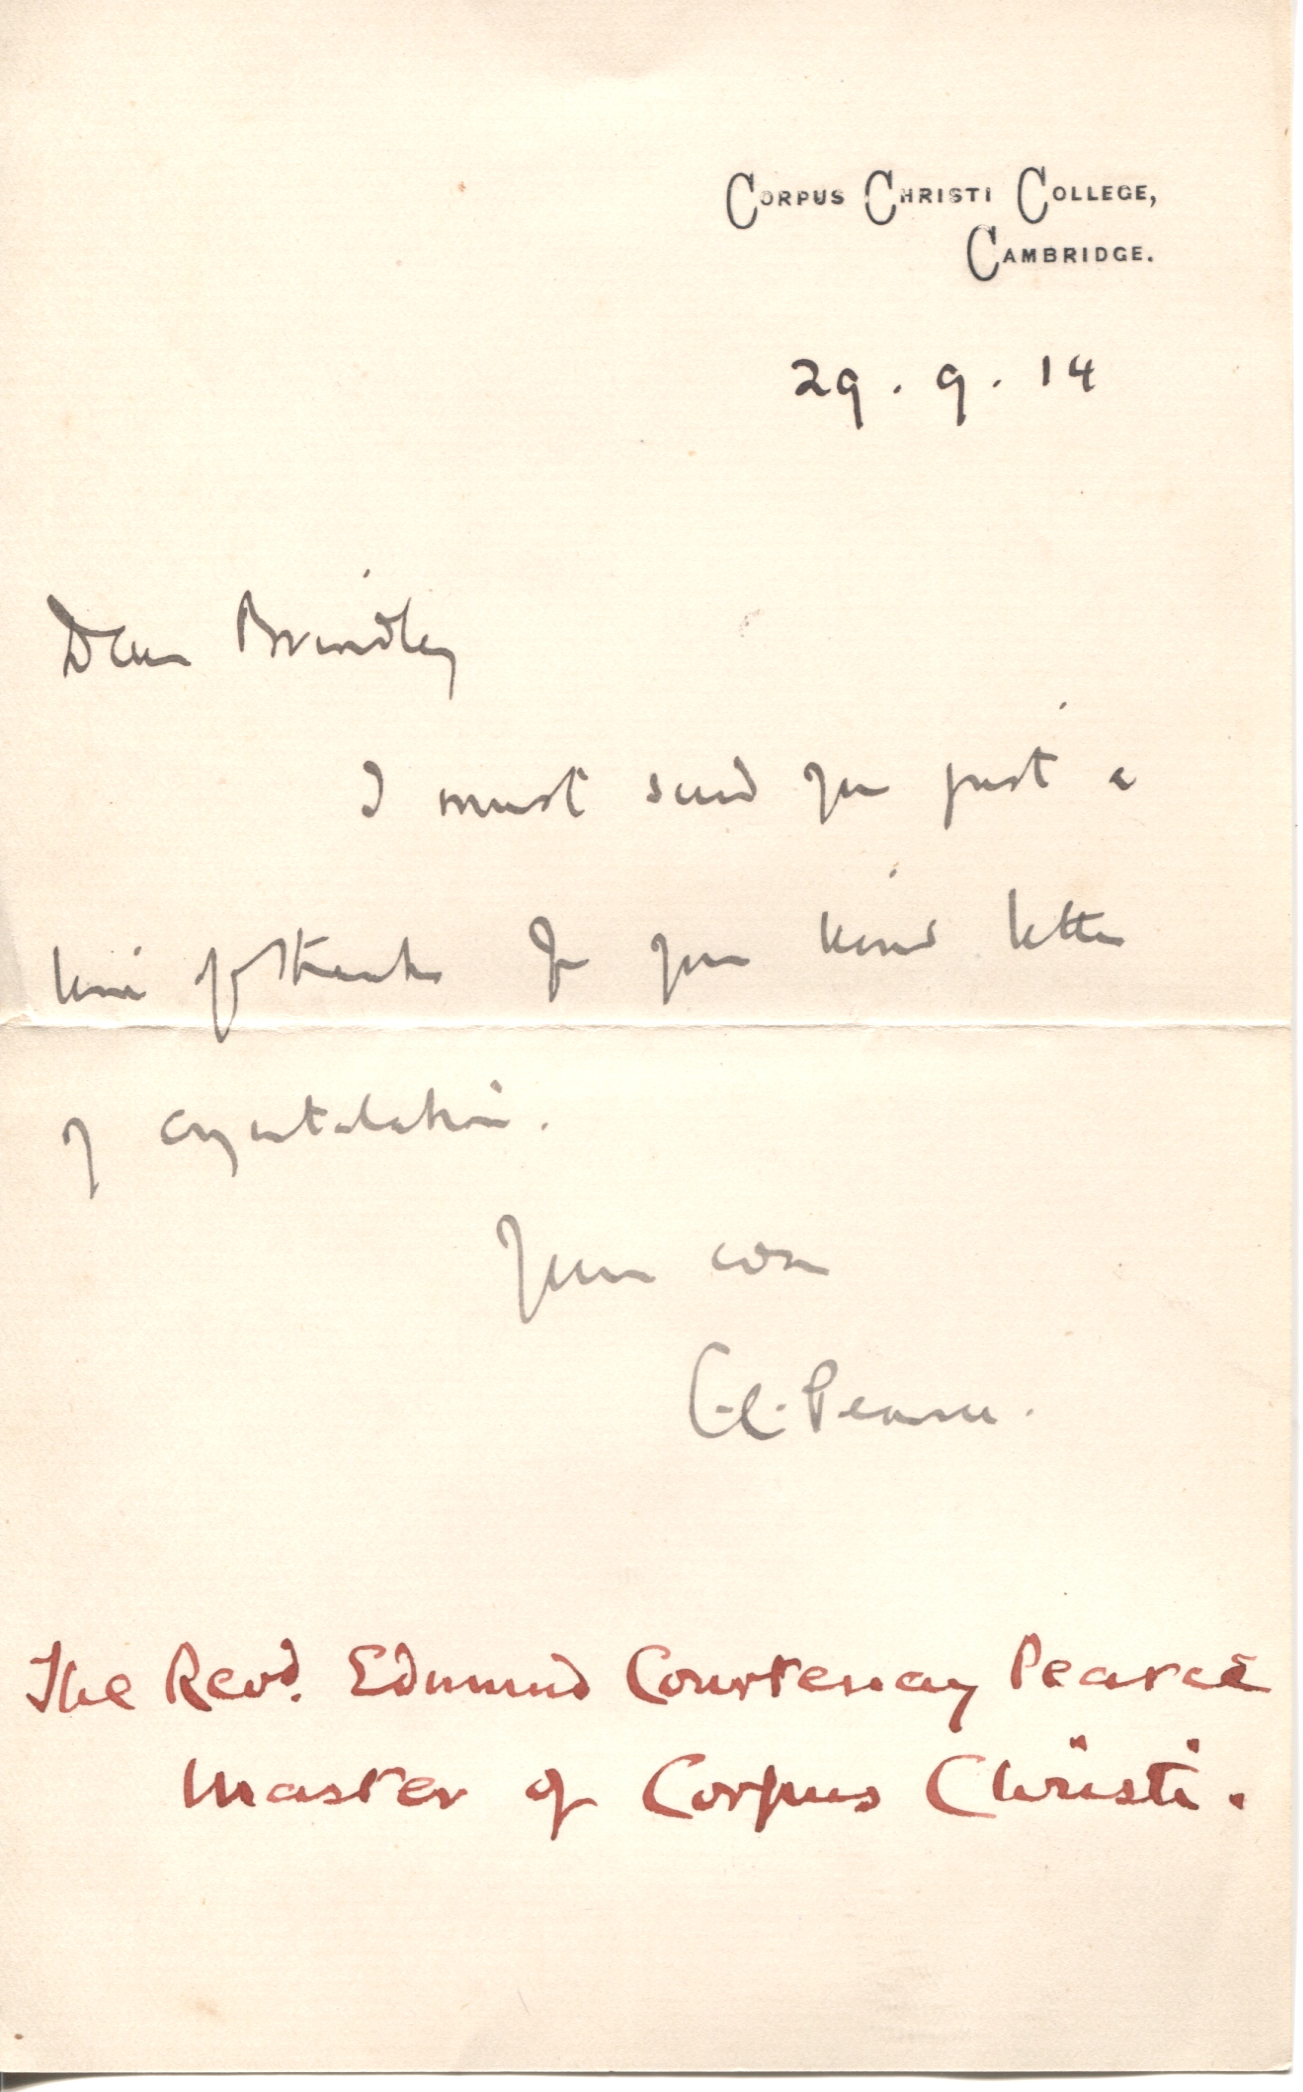 CORPUS CHRISTI COLLEGE,
CAMBRIDGE.
29.9.14
Dear Brindley
I must send you just a
line of thanks for your kind letter
of congratulation.
Yours ever
E.C. Pearce.
The Revd. Edmund Courtenay Pearce
Master of Corpus Christi.